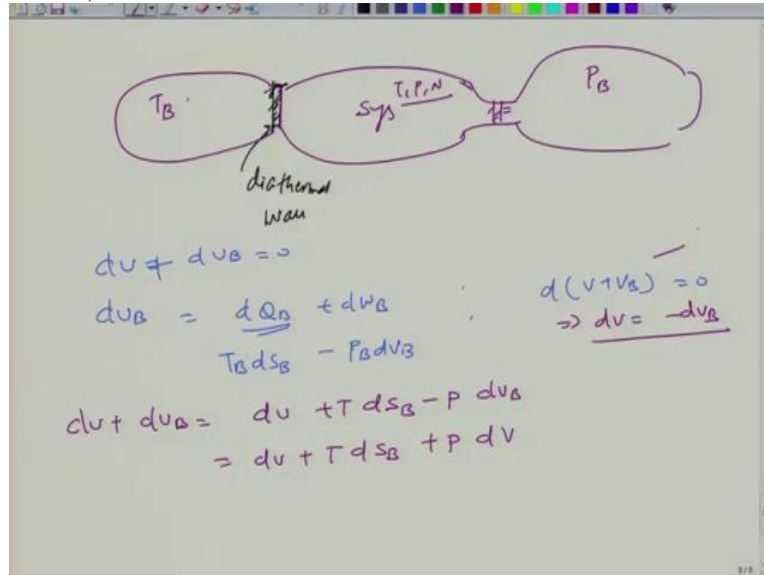 T_B
Sys T, P, N
P_B
diathermal
wall
dU + dU_B = 0
dU_B = dQ_B + dW_B
d(V+V_B) = 0
T_B dS_B - P_B dV_B
=> dV = -dV_B
dU + dU_B = dU + T dS_B - P dV_B
= dU + T dS_B + P dV
8/8